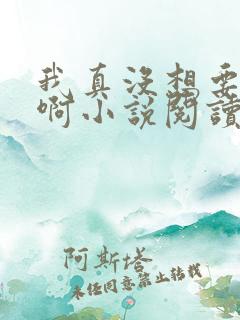 我真没想要
啊小说閱讀
阿斯塔
未经同意禁止转载